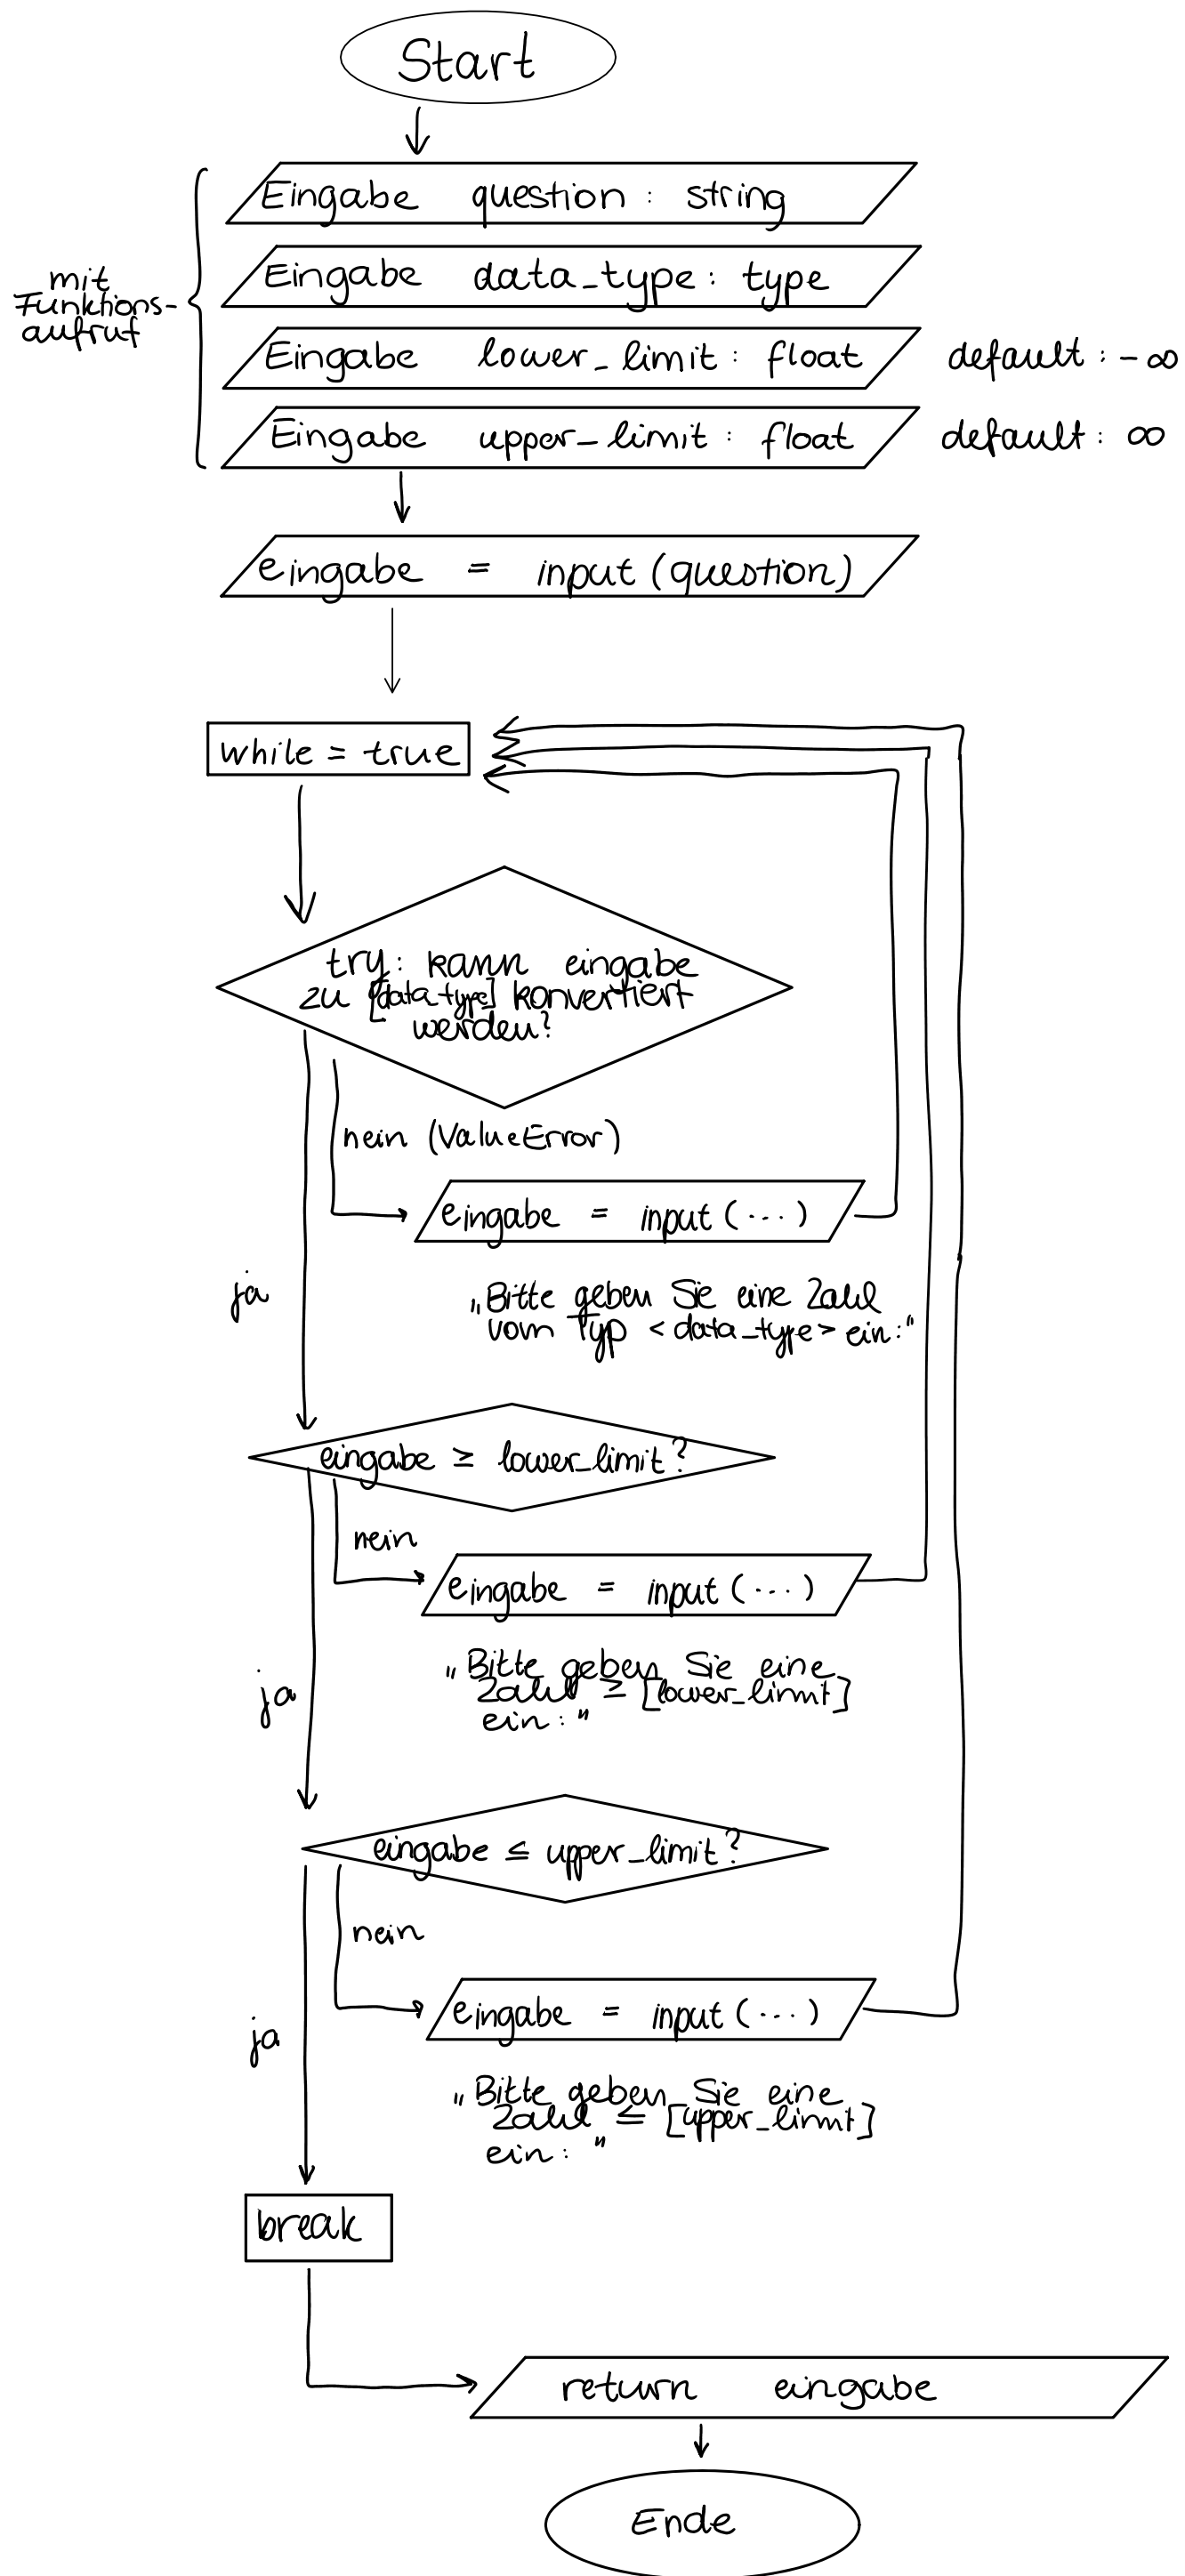 Start
Eingabe question : string
mit
Funktions-
aufruf
Eingabe data_type : type
Eingabe lower_limit : float default : -∞
Eingabe upper_limit : float default : ∞
eingabe = input (question)
while = true
try: kann eingabe
zu [data_type] konvertiert
werden?
nein (ValueError)
eingabe = input (...)
ja
„Bitte geben Sie eine Zahl
vom Typ <data_type> ein:"
eingabe ≥ lower_limit?
nein
eingabe = input (...)
„Bitte geben Sie eine
Zahl ≥ [lower_limit]
ein:"
ja
eingabe ≤ upper_limit?
nein
eingabe = input (...)
ja
„Bitte geben Sie eine
Zahl ≤ [upper_limit]
ein:"
break
return eingabe
Ende